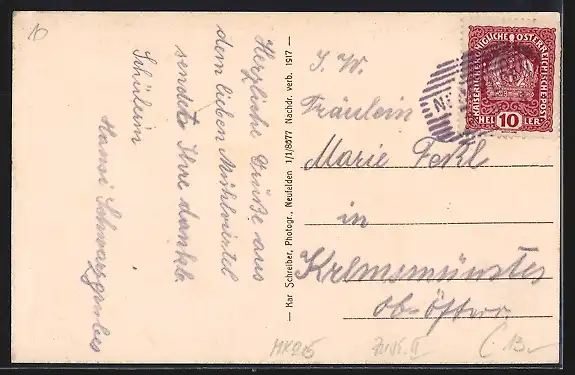 Herzliche Grüße aus
dem lieben Mühlviertel
sendete Ihre dankb.
Schülerin
Hansi Schwarzgruber
— Kar Schreiber, Photogr., Neufelden 1/1/8677 Nachdr. verb. 1917 —
KAISERLICHE KÖNIGLICHE ÖSTERREICHISCHE POST
HEL 10 LER
Fräulein
Marie Ferkl
in
Kremsmünster
Ob. Österr.
MK 25
C 13.–